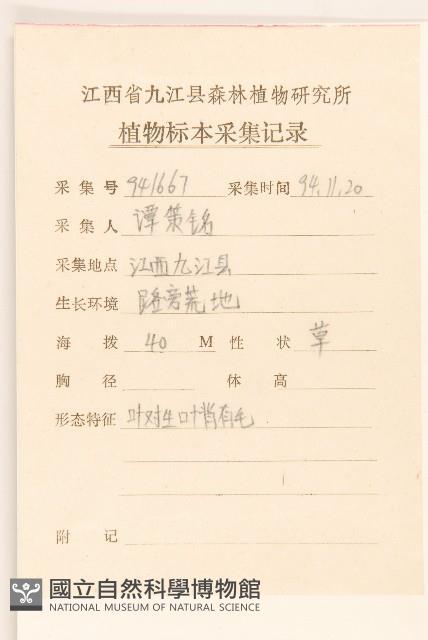 江西省九江县森林植物研究所
植物标本采集记录
采集号 941667 采集时间 94.11.20
采集人 谭策铭
采集地点 江西九江县
生长环境 路旁荒地
海拨 40 M 性状 草
胸径 体高
形态特征 叶对生叶背有毛
附记
國立自然科學博物館
NATIONAL MUSEUM OF NATURAL SCIENCE